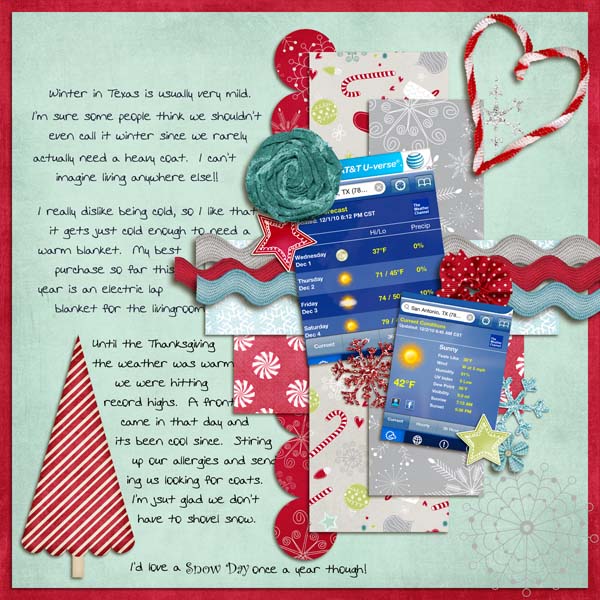 Winter in Texas is usually very mild.
I'm sure some people think we shouldn't
even call it winter since we rarely
actually need a heavy coat. I can't
imagine living anywhere else!!
I really dislike being cold, so I like that
it gets just cold enough to need a
warm blanket. My best
purchase so far this
year is an electric lap
blanket for the livingroom
Until the Thanksgiving
the weather was warm
we were hitting
record highs. A front
came in that day and
its been cool since. Stiring
up our allergies and send
ing us looking for coats.
I'm jsut glad we don't
have to shovel snow.
I'd love a Snow Day once a year though!
AT&T U-verse
at&t
, TX (78...
Forecast
Updated: 12/1/10 6:12 PM CST
The Weather Channel
Hi/Lo Precip
Wednesday
Dec 1 37°F 0%
Thursday
Dec 2 71 / 45°F 0%
Friday
Dec 3 74 / 50 10%
Saturday
Dec 4 79 /
Current
San Antonio, TX (78...
Current Conditions
Sunny
Feels Like
Wind
Humidity
UV Index
Dew Point
Visibility
Sunrise
Sunset
42°F
Current Hourly